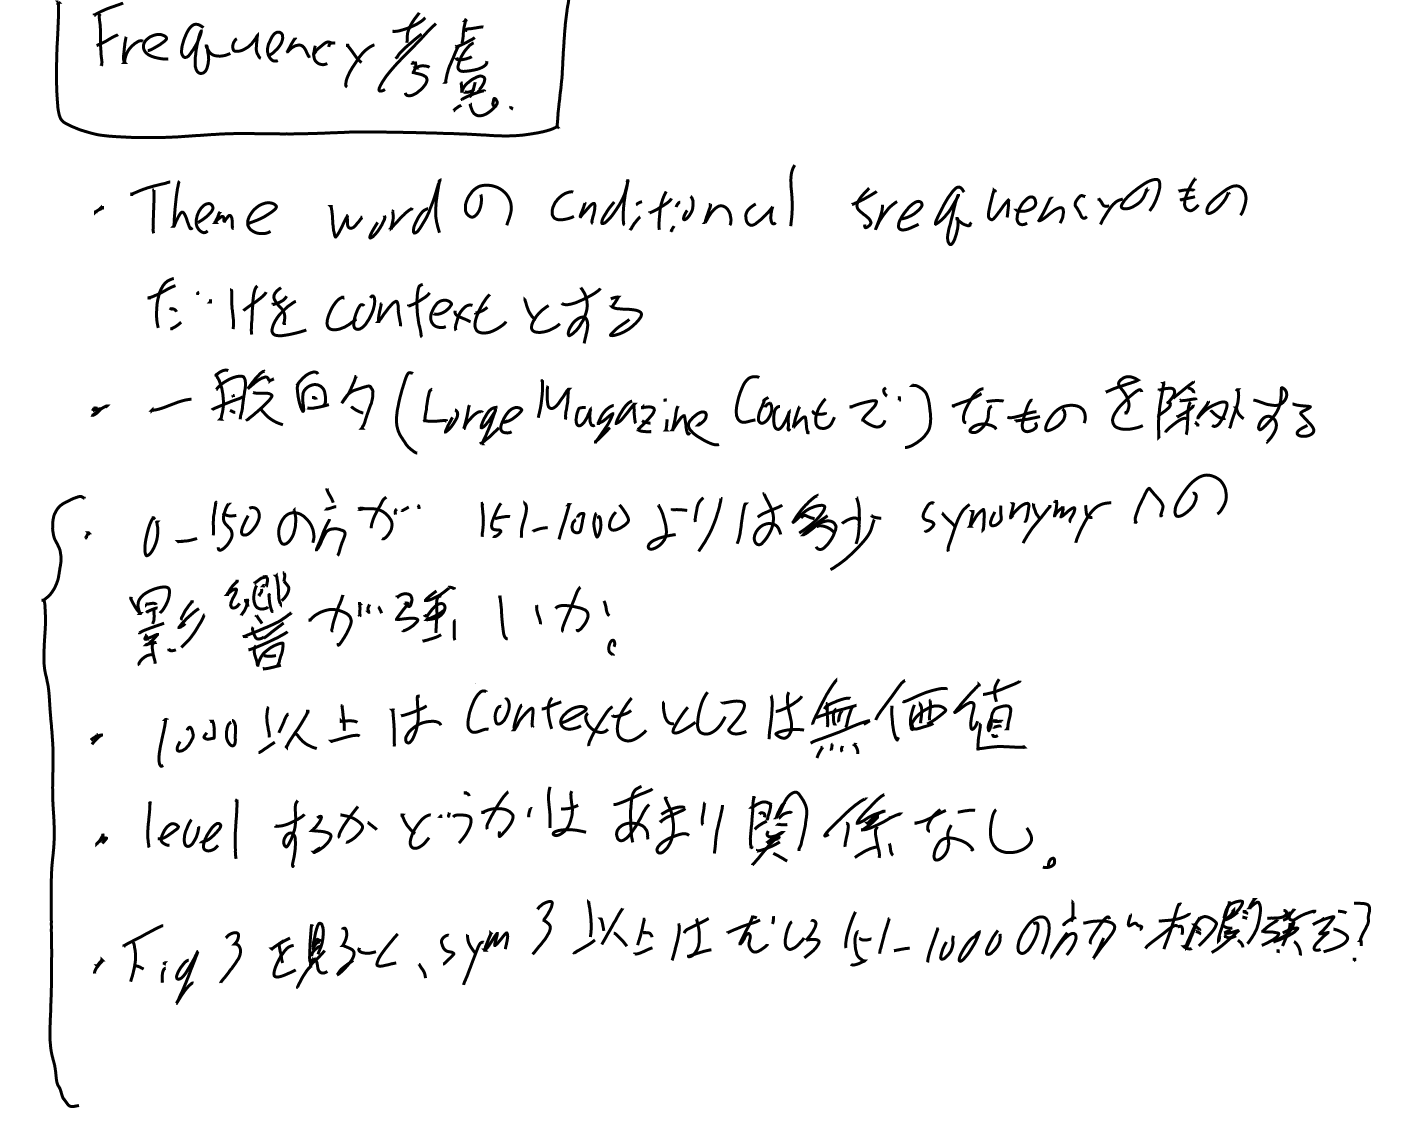 Frequency考慮.
・Theme wordのcnditional frequencyのもの
だけをcontextとする
・一般的(Large Magazine Countで)なものを除外する
・0-150の方が 151-1000よりは多少 synonymyへの
影響が強いか。
・1000以上はcontextとしては無価値
・levelするかどうかはあまり関係なし。
・Fig 3を見ると、sym 3以上はむしろ151-1000の方が相関